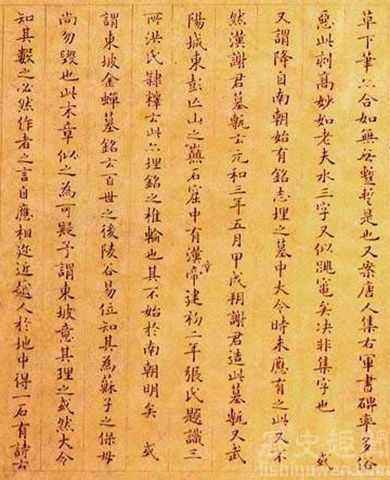 草下筆亦合如無㡳蹔是也又案唐人集右軍書碑率多俗
惡此刻高妙如老夫水三字又似躐竈矣决非集字也 或
又謂降自南朝始有銘志埋之墓中大令時未應有之此又不
然漢謝君墓甎云元和三年五月甲戌朔謝君造此墓甎又武
陽城東彭亡山之巔石窟中有漢章帝建初二年張氏題識三
所洪氏隸釋云此亦埋銘之椎輪也其不始於南朝明矣 或
謂東坡金蟬墓銘云百世之後陵谷易位知其為蘇子之保母
尚勿毀也此末章似之為可疑予謂東坡意其理之或然大令
知其數之必然作者之言自應相邇近越人於地中得一石有詩云
历史趣闻
lishiquwen.com